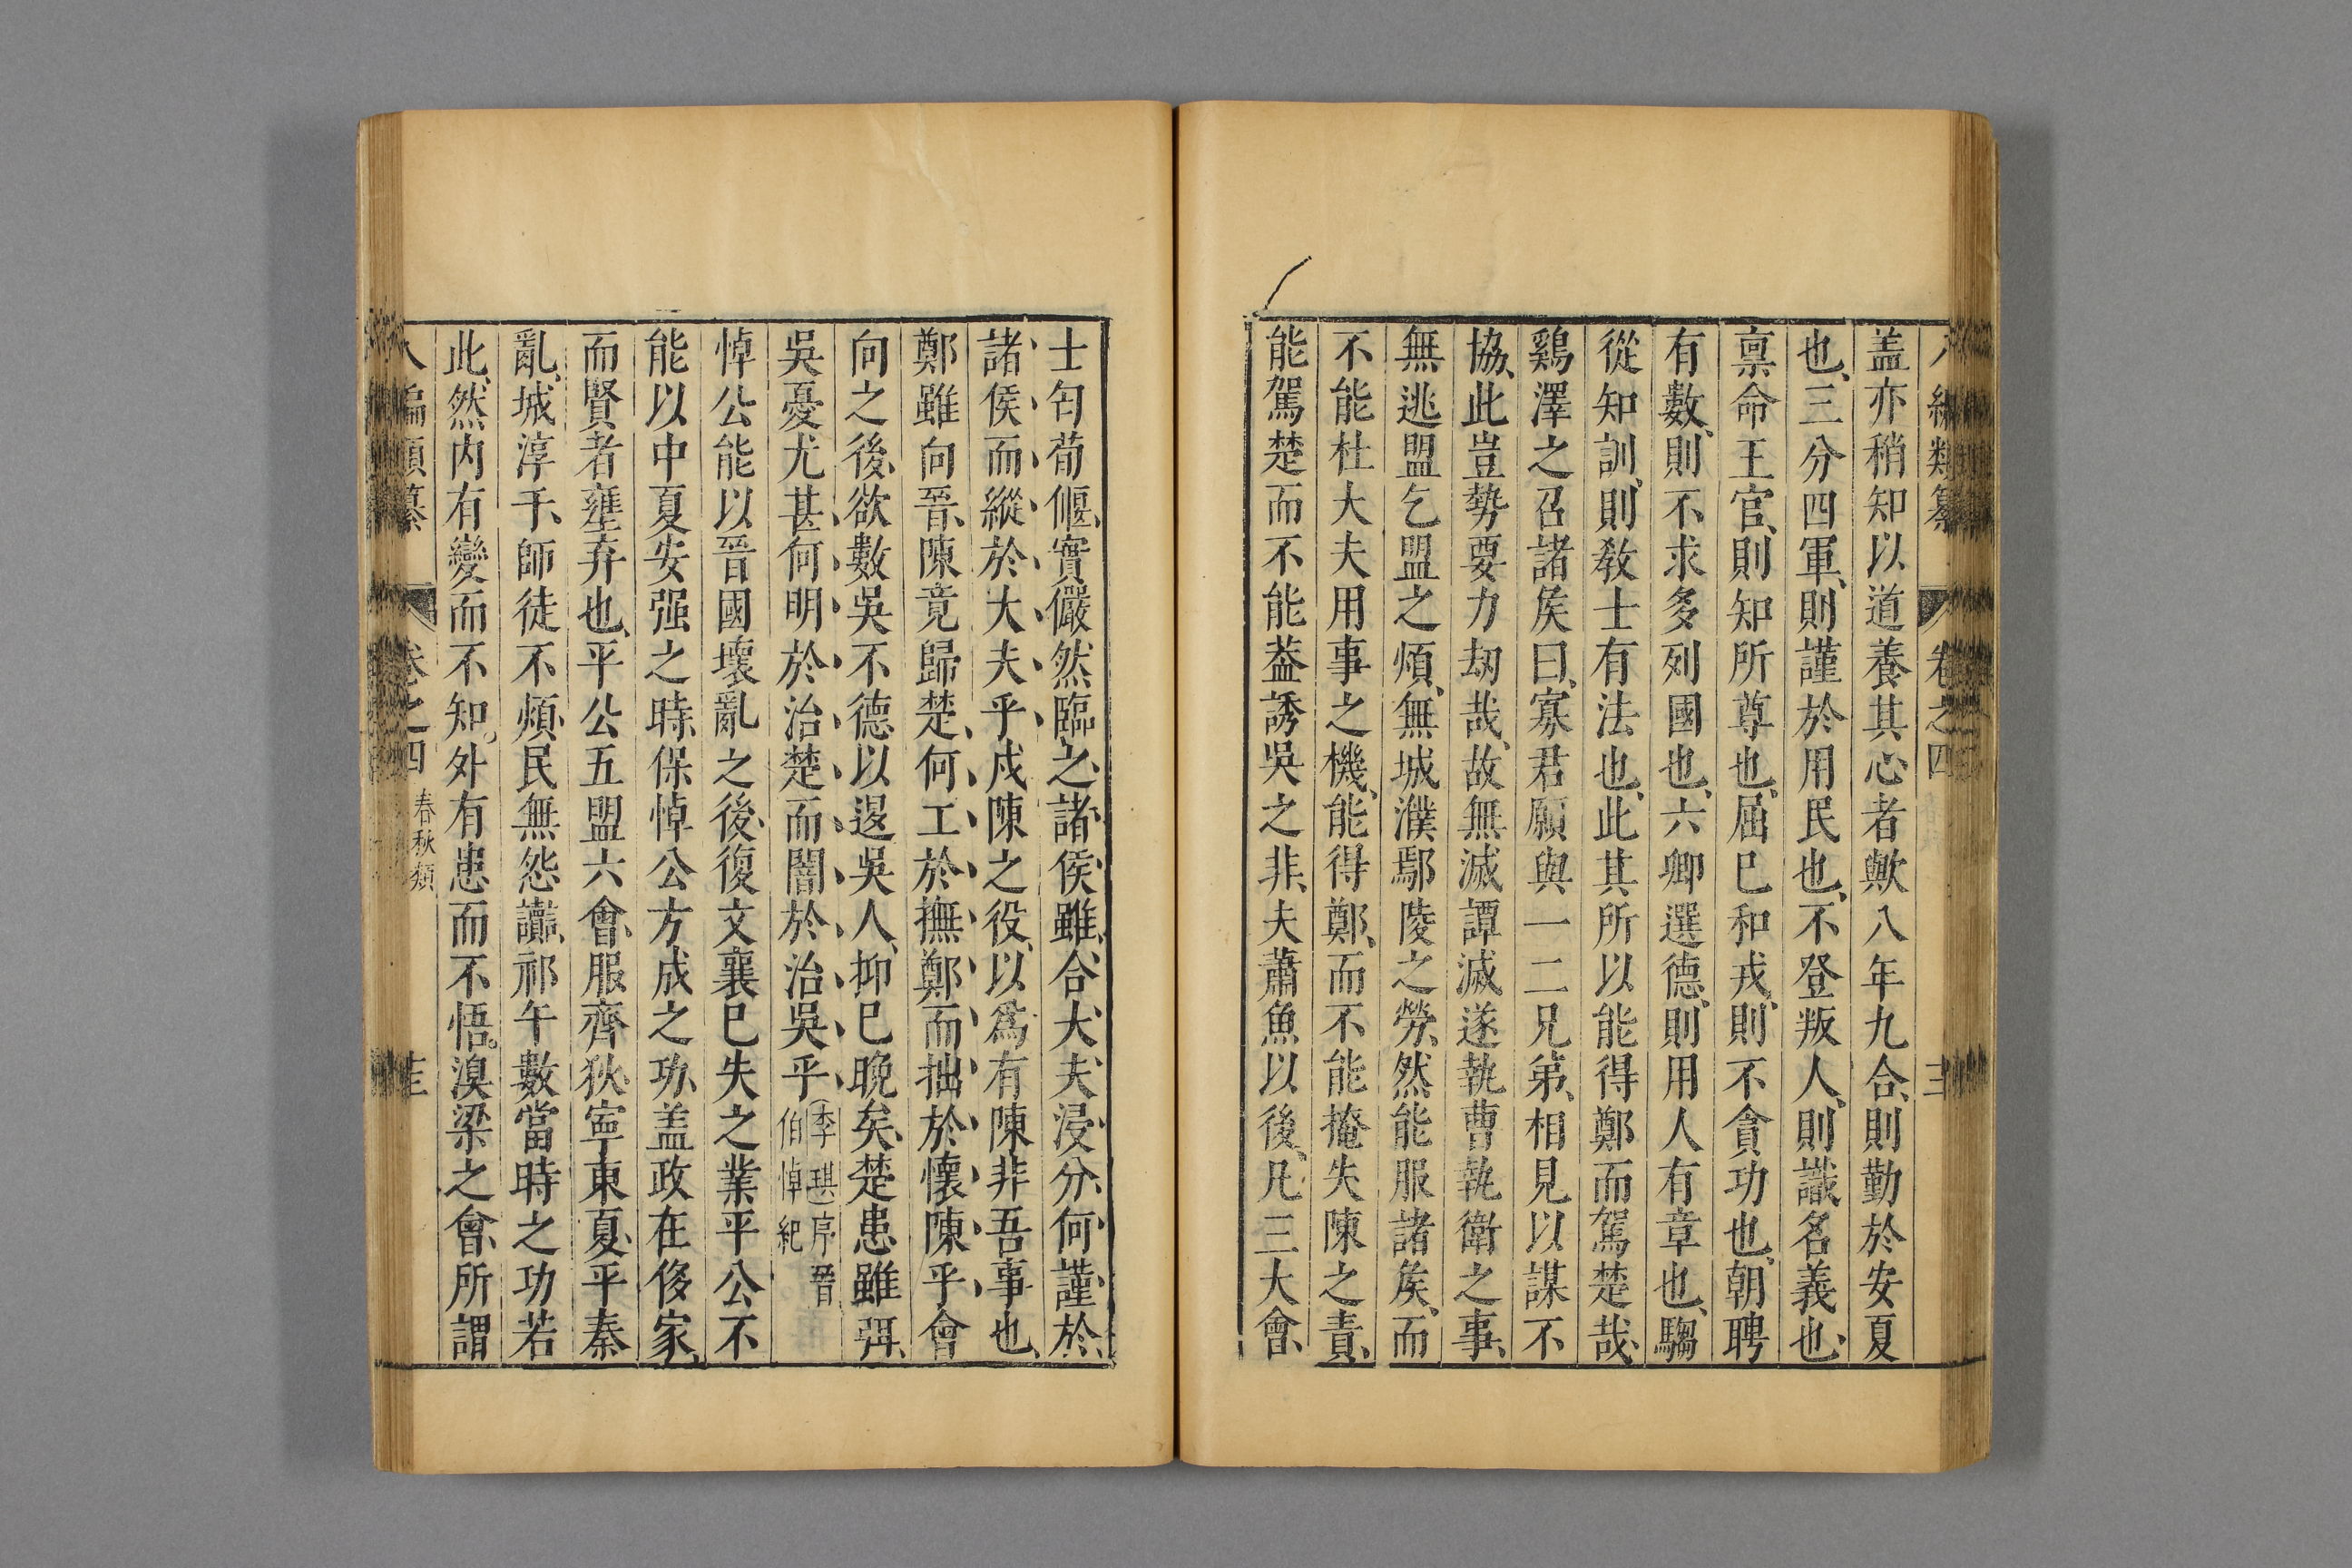 編類纂 卷之四
蓋亦稍知以道養其心者歟八年九合、則勤於安夏
也、三分四軍、則謹於用民也、不登叛人、則識名義也、
禀命王官、則知所尊也、屈已和戎、則不貪功也、朝聘
有數、則不求多列國也、六卿選德、則用人有章也、騶
從知訓、則敎士有法也、此其所以能得鄭而駕楚哉、
鷄澤之召諸矦曰、寡君願與一二兄弟、相見以謀不
協、此豈勢要力刼哉、故無滅譚滅遂執曹執衛之事、
無逃盟乞盟之煩、無城濮鄢陵之勞、然能服諸矦、而
不能杜大夫用事之機、能得鄭、而不能掩失陳之責、
能駕楚而不能葢誘吳之非、夫蕭魚以後、凡三大會、
士匄荀偃、實儼然臨之、諸侯雖合、大夫浸分、何謹於
諸侯而縱於大夫乎戍陳之役、以爲有陳非吾事也、
鄭雖向晉、陳竟歸楚、何工於撫鄭而拙於懷陳乎、會
向之後、欲數吳不德、以退吳人、抑已晚矣、楚患雖弭、
吳憂尤甚、何明於治楚而闇於治吳乎、李琪序晉伯悼紀
悼公能以晉國壞亂之後、復文襄已失之業平公不
能以中夏安强之時、保悼公方成之功、蓋政在侈家、
而賢者壅弃也、平公五盟六會、服齊狄、寧東夏、平秦
亂、城淳于、師徒不煩、民無怨讟、祁午數當時之功若
此、然内有變而不知、外有患而不悟。湨梁之會、所謂
編類纂 卷之四 春秋類